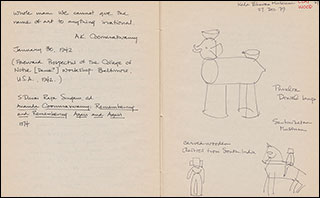 whole man we cannot give the
name of art to anything irrational.
A.K. Coomaraswamy
January 30, 1942
(Foreword Prospectus of the College of
Notre [Dame?] Workshop Baltimore,
U.S.A. 1942.)
S. Durai Raja Singam ed.
Ananda Coomaraswamy: Remembering
and Remembering Again and Again
1974
Kala Bhavan Museum
29 Dec '79
WOOD
Santiniketan
Museum
carved wooden
from South India